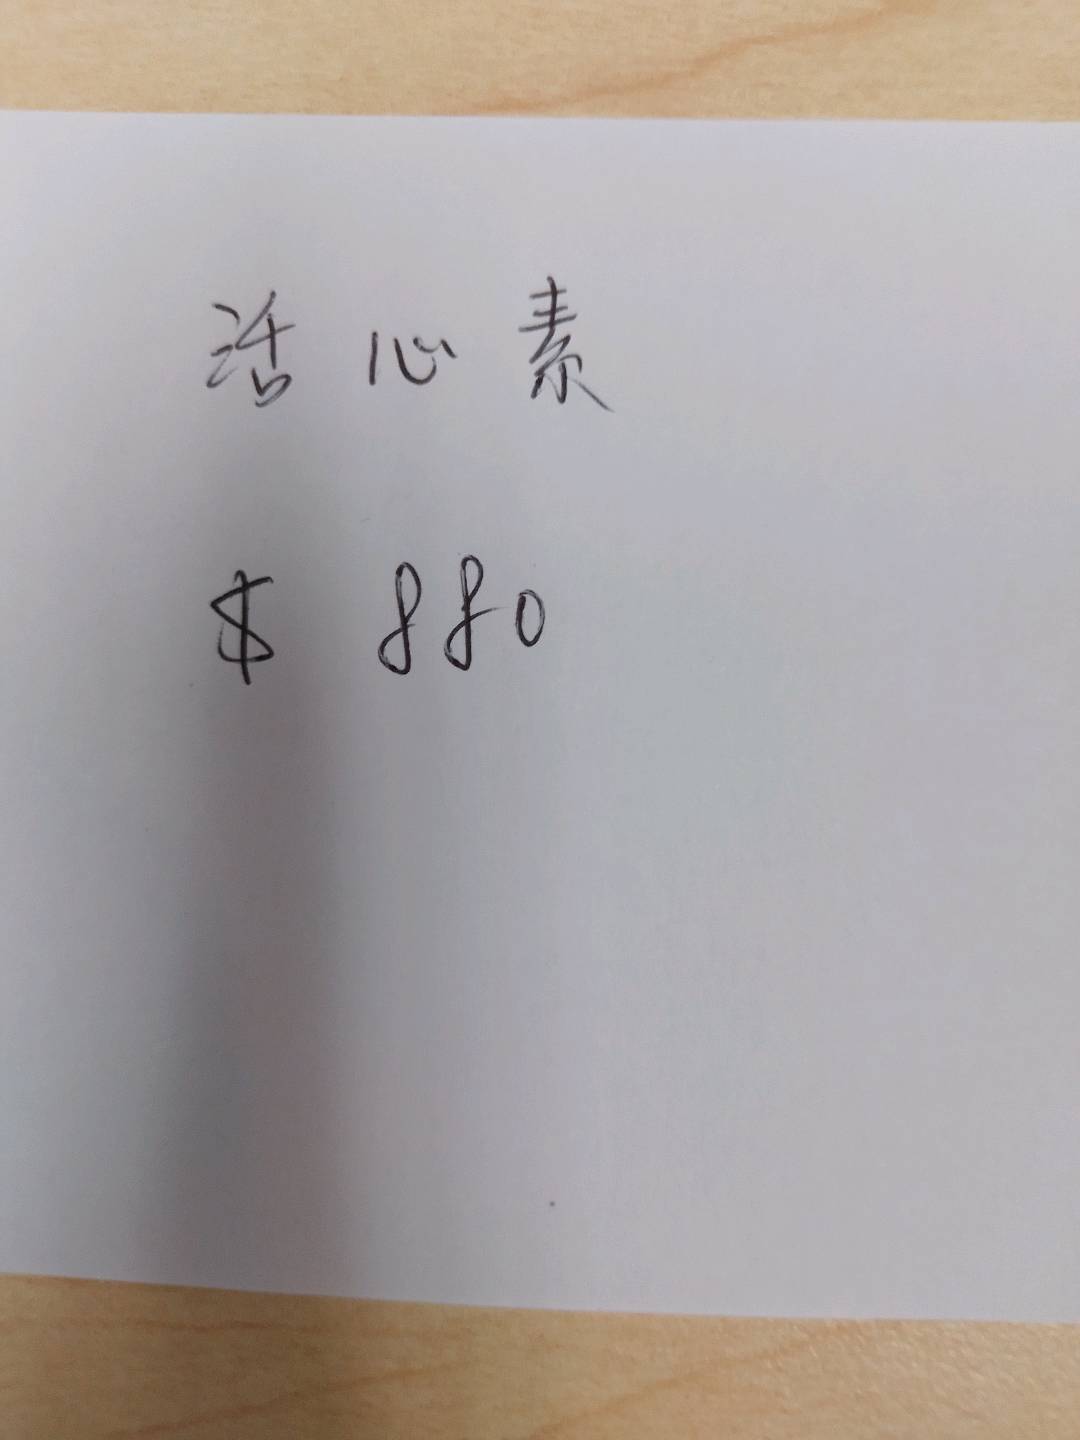 活心素
$ 880